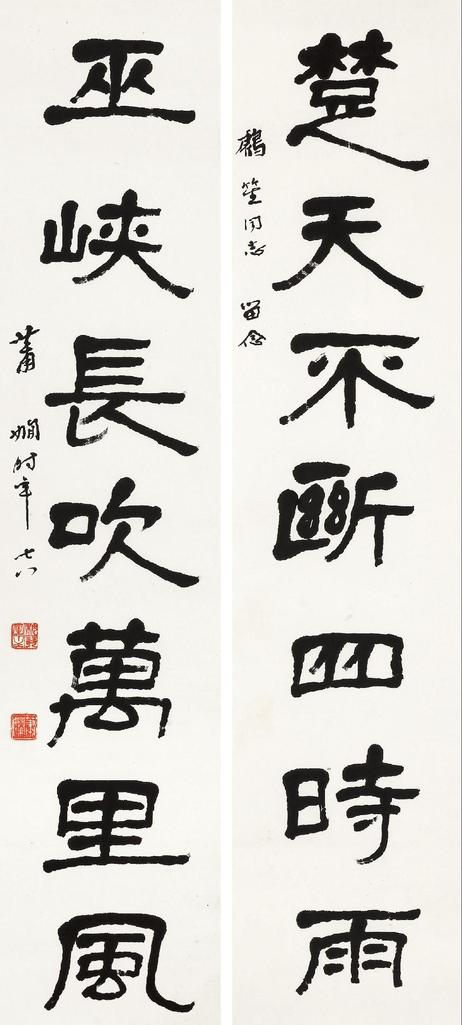 楚天不斷四時雨
鶴笙同志 留念
巫峽長吹萬里風
蕭嫻时年七八